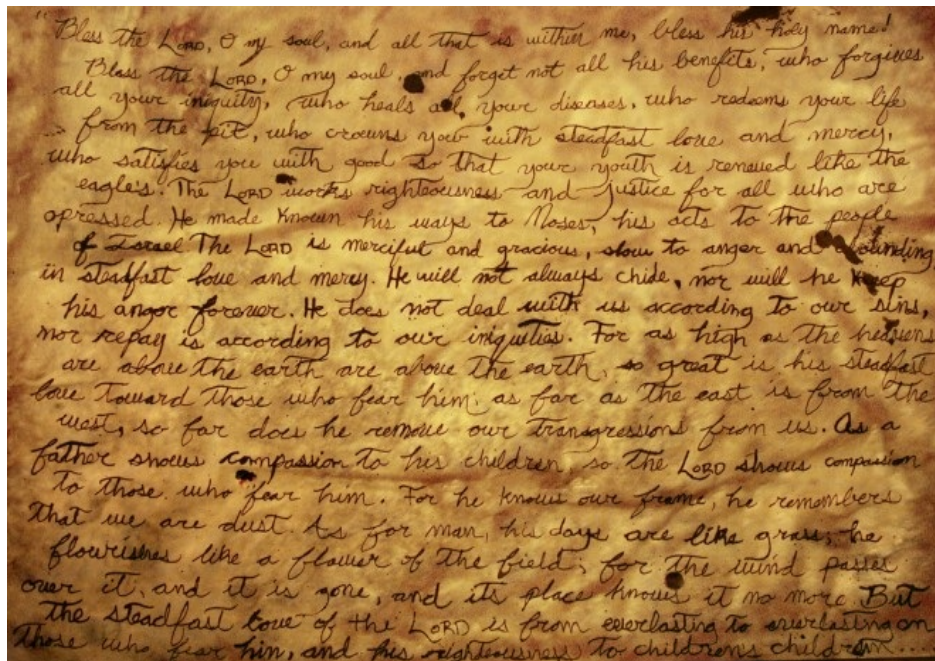 "Bless the LORD, O my soul, and all that is within me, bless his holy name!
Bless the LORD, O my soul, and forget not all his benefits, who forgives
all your iniquity, who heals all your diseases, who redeems your life
from the pit, who crowns you with steadfast love and mercy,
who satisfies you with good so that your youth is renewed like the
eagle's. The LORD works righteousness and justice for all who are
opressed. He made known his ways to Moses, his acts to the people
of Israel The LORD is merciful and gracious, slow to anger and abounding
in steadfast love and mercy. He will not always chide, nor will he keep
his anger forever. He does not deal with us according to our sins,
nor repay is according to our iniquities. For as high as the heavens
are above the earth are above the earth, so great is his steadfast
love toward those who fear him; as far as the east is from the
west, so far does he remove our transgressions from us. As a
father shows compassion to his children, so the LORD shows compassion
to those who fear him. For he knows our frame, he remembers
that we are dust. As for man, his days are like grass; he
flourishes like a flower of the field; for the wind passes
over it, and it is gone, and its place knows it no more. But
the steadfast love of the LORD is from everlasting to everlasting on
those who fear him, and his righteousness to children's children....